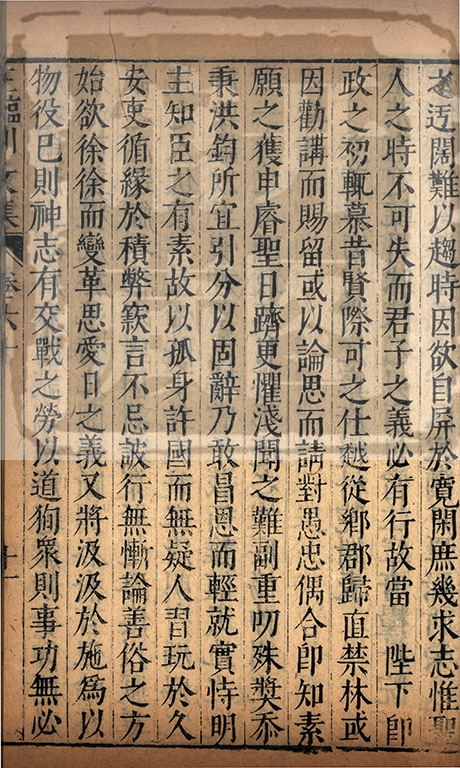 迂闊難以趨時因欲自屏於寬閑庶幾求志惟聖
人之時不可失而君子之義必有行故當　陛下卽
政之初輒慕昔賢際可之仕越從鄉郡歸直禁林或
因勸講而賜留或以論思而請對愚忠偶合卽知素
願之獲申睿聖日躋更懼淺聞之難副重叨殊奬忝
秉洪鈞所宜引分以固辭乃敢昌恩而輕就實恃明
主知臣之有素故以孤身許國而無疑人習玩於久
安吏循緣於積弊窾言不忌詖行無慚論善俗之方
始欲徐徐而變革思愛日之義又將汲汲於施爲以
物役已則神志有交戰之勞以道狥衆則事功無必
臨川文集　卷六　十一